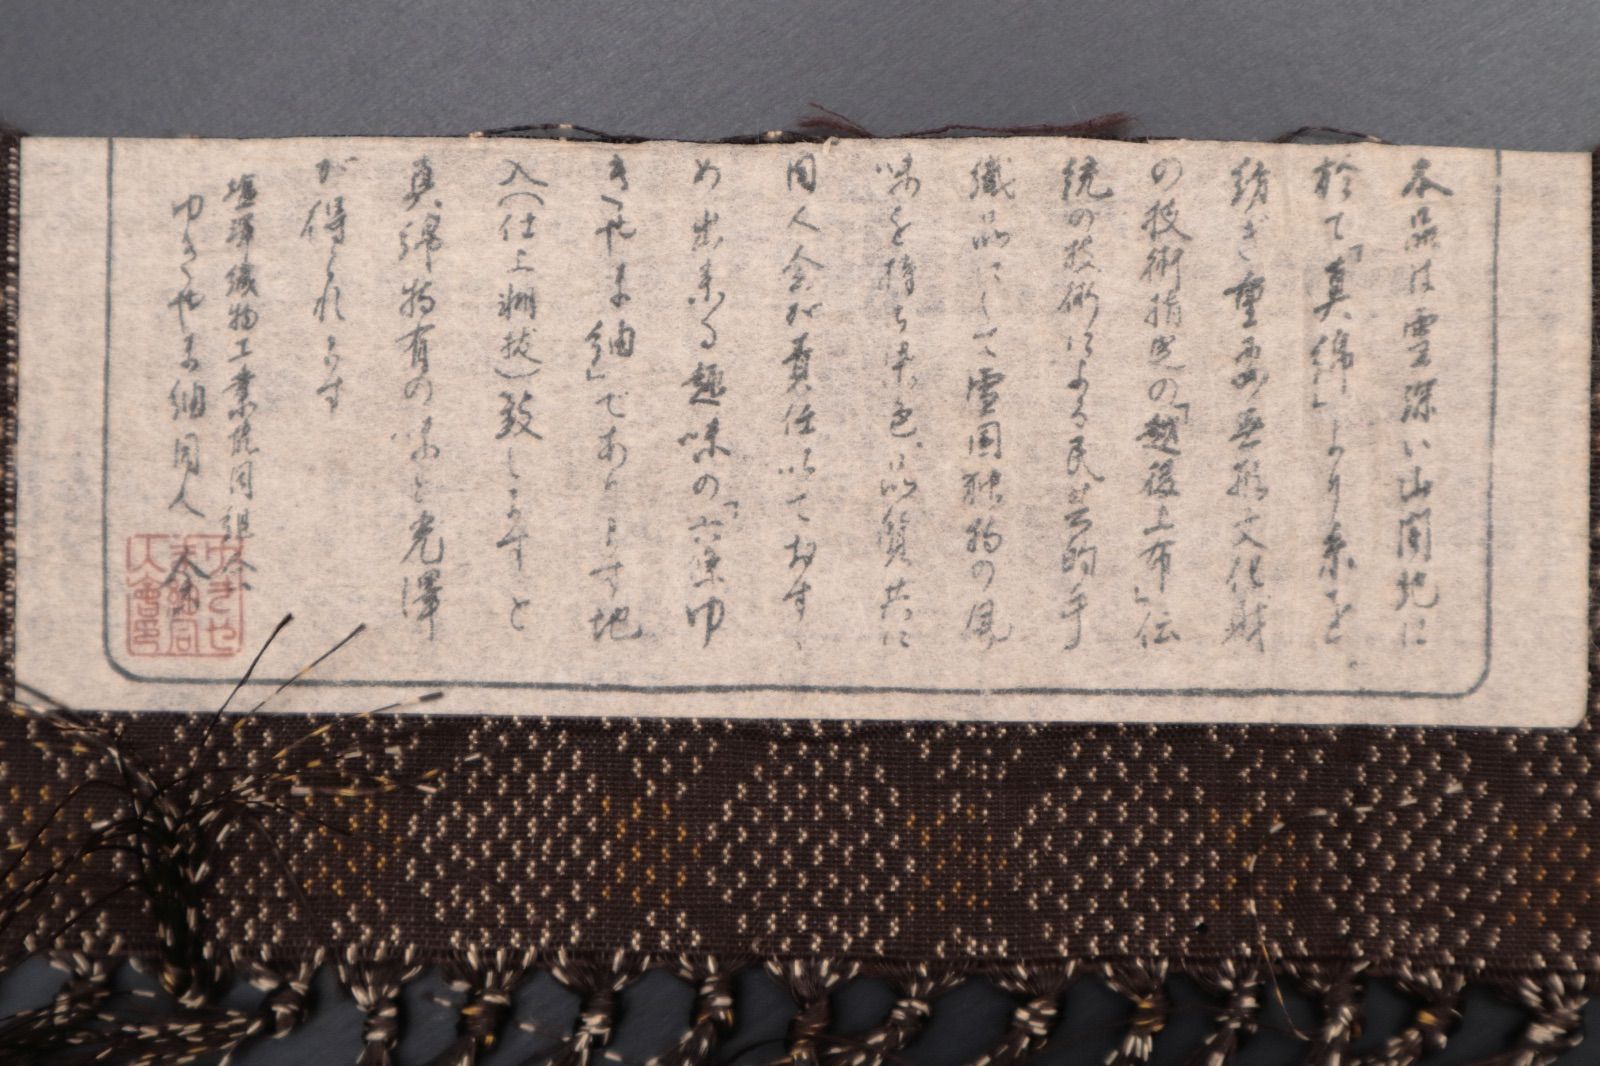 本品は雪深い山間地に
於て「真綿」より糸を
紡ぎ重要無形文化財
の技術指定の「越後上布」伝
統の技術による民芸的手
織品にして雪国独特の風
味を持ち染色、品質共に
同人会が責任以ておすゝ
め出来る趣味の「六条ゆ
きやま紬」であります地
入(仕上糊抜)致しますと
真綿特有の味と光澤
が得られます
塩澤織物工業協同組合
ゆきやま紬同人会